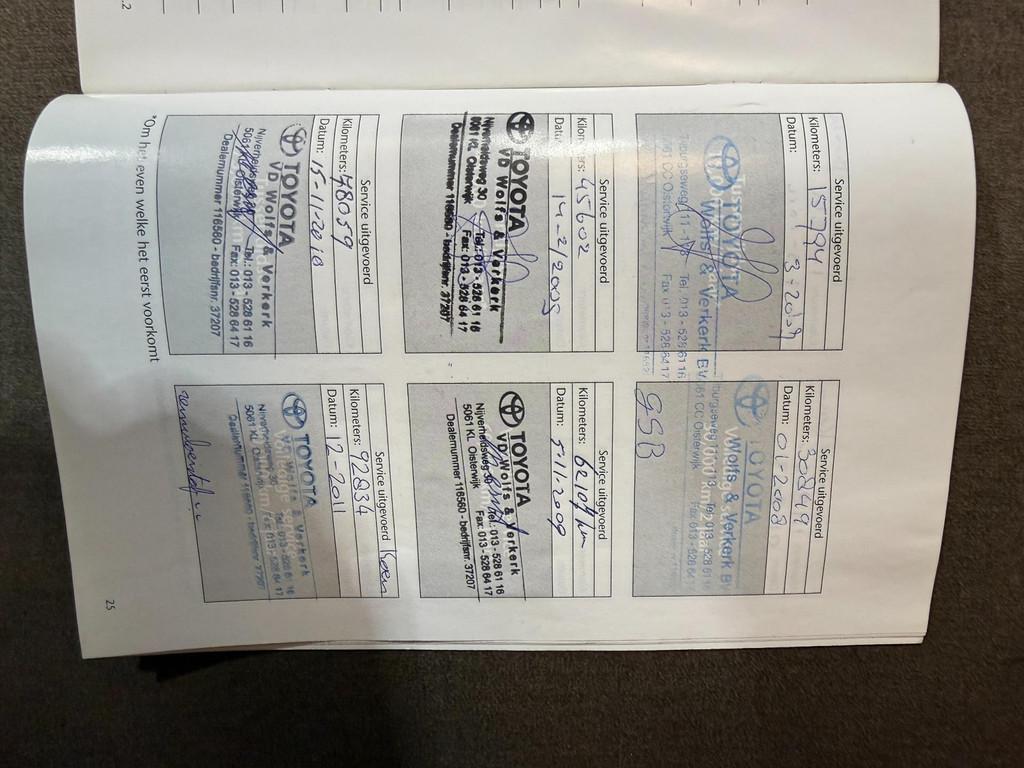 Service uitgevoerd
Kilometers: 15794
Datum: 3-2007
TOYOTA
Wolfs & Verkerk BV
Tel. 013 - 528 61 16
5061 CC Oisterwijk Fax 013 - 528 6417
Service uitgevoerd
Kilometers: 30849
Datum: 01-2008
TOYOTA
Wolfs & Verkerk BV
Tel. 013 - 528 61 16
5061 CC Oisterwijk Fax 013 - 528 64
GSB
Service uitgevoerd
Kilometers: 45602
Datum: 14-2/2009
TOYOTA
VD Wolfs & Verkerk
Nijverheidsweg 30 Tel.: 013 - 528 61 16
5061 KL Oisterwijk Fax: 013 - 528 64 17
Dealernummer 116560 - bedrijfsnr. 37207
Service uitgevoerd
Kilometers: 62107 km
Datum: 5-11-2009
TOYOTA
VD Wolfs & Verkerk
Nijverheidsweg 30 Tel.: 013 - 528 61 16
5061 KL Oisterwijk Fax: 013 - 528 64 17
Dealernummer 116560 - bedrijfsnr. 37207
Service uitgevoerd
Kilometers: 78059
Datum: 15-11-2010
TOYOTA
VD Wolfs & Verkerk
Nijverheidsweg 30 Tel.: 013 - 528 61 16
5061 KL Oisterwijk Fax: 013 - 528 64 17
Dealernummer 116560 - bedrijfsnr. 37207
Service uitgevoerd
Kilometers: 92234
Datum: 12-2011
TOYOTA
VD Wolfs & Verkerk
Nijverheidsweg 30 Tel.: 013 - 528 61 16
5061 KL Oisterwijk Fax: 013 - 528 64 17
Dealernummer 116560 - bedrijfsnr. 37207
*Om het even welke het eerst voorkomt
25